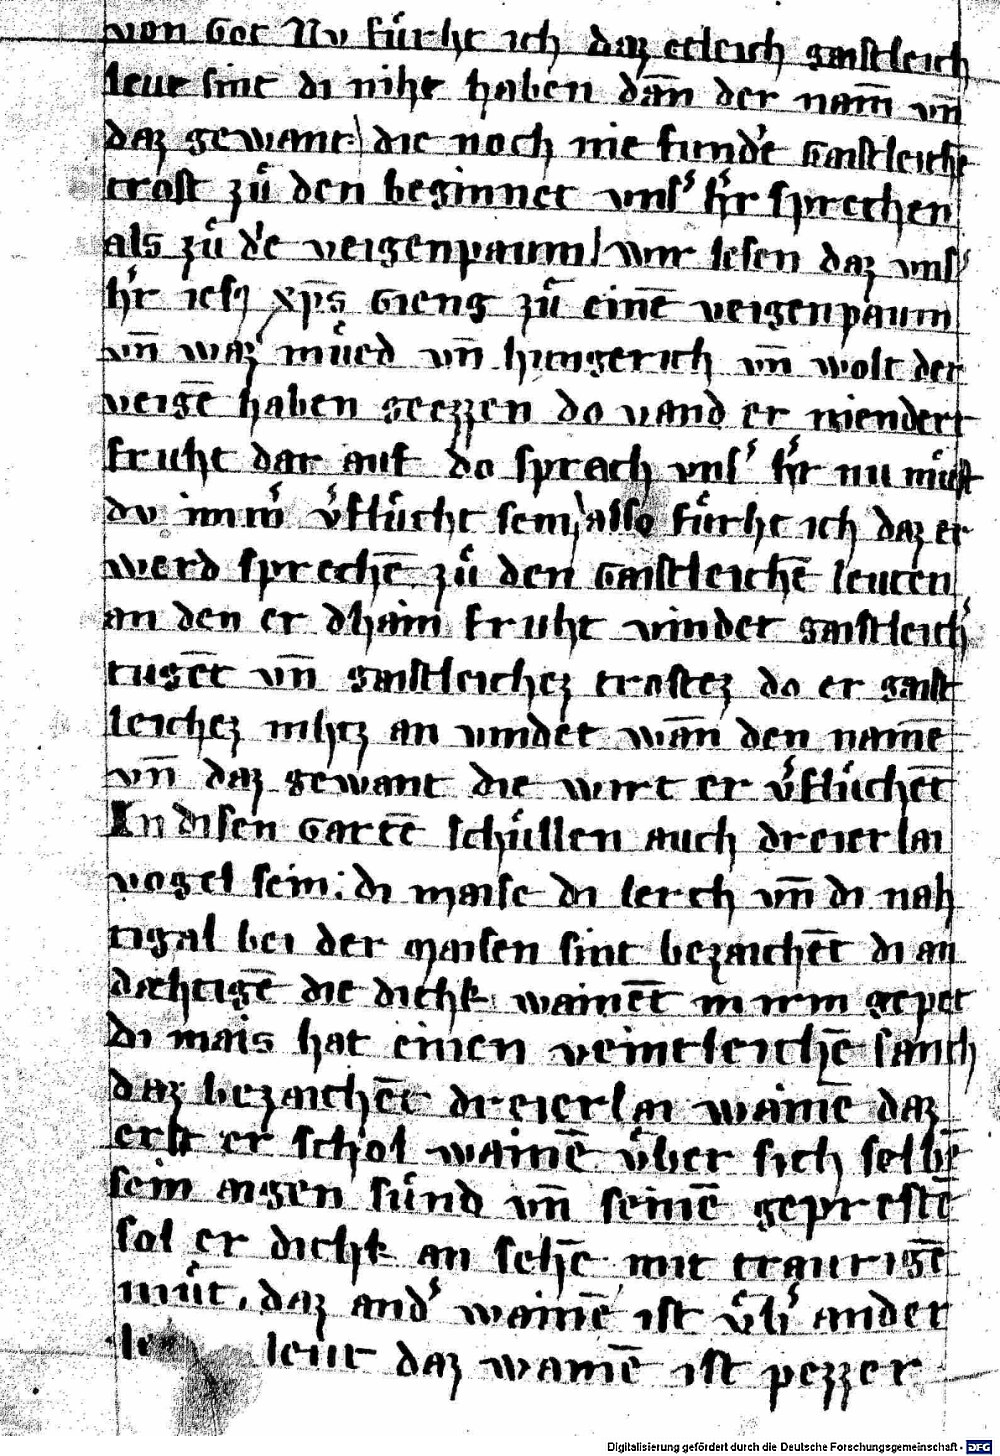 von Got Nv fuͤrht ich daz etleich gaistleich
leut sint di niht haben dan̄ der nam̄ vn̄
daz gewant die noch nie funde Gaistleiche
trost zuͦ den beginnet vnsʾ hʾr sprechen
als zuͦ dē veigenpaum wir lesen daz vnsʾ
hʾr iesꝰ xp̄s Gieng zuͦ eine̅ veigenpaum
vn̄ waz muͤed vn̄ hungerich vn̄ wolt der
veige̅ haben geezzen do vand er niendert
fruht dar auf do sprach vnsʾ hʾr nu muͤst
du immʾ vʾfluͤcht sein also fuͤrht ich daz er
werd spreche̅ zuͦ den Gaistleiche̅ leuten
an den er dhain fruht vindet gaistleichʾ
tuge̅t vn̄ gaistleichez trostez do er gaist
leichez nihtz an vindet wan̄ den name̅
vn̄ daz gewant die wirt er vʾfluͤche̅t
In disen Garte̅ schuͤllen auch dreierlai
vogel sein: di maise di lerch vn̄ di nah
tigal bei der maisen sint bezaiche̅t di an
dæhtige̅ die dichk waine̅t in irm gepet
di mais hat einen veintleiche̅ sanch
daz bezaiche̅t dreierlai waine̅ daz
erst er schol waine̅ vͤber sich selbe̅
sein aigen suͤnd vn̄ seine̅ gepreste̅
sol er dichk an sehe̅ mit traurige̅
muͤt. daz andʾ waine̅ ist vͤbʾ ander
leut daz waine̅ ist pezzer
Digitalisierung gefördert durch die Deutsche Forschungsgemeinschaft - DFG